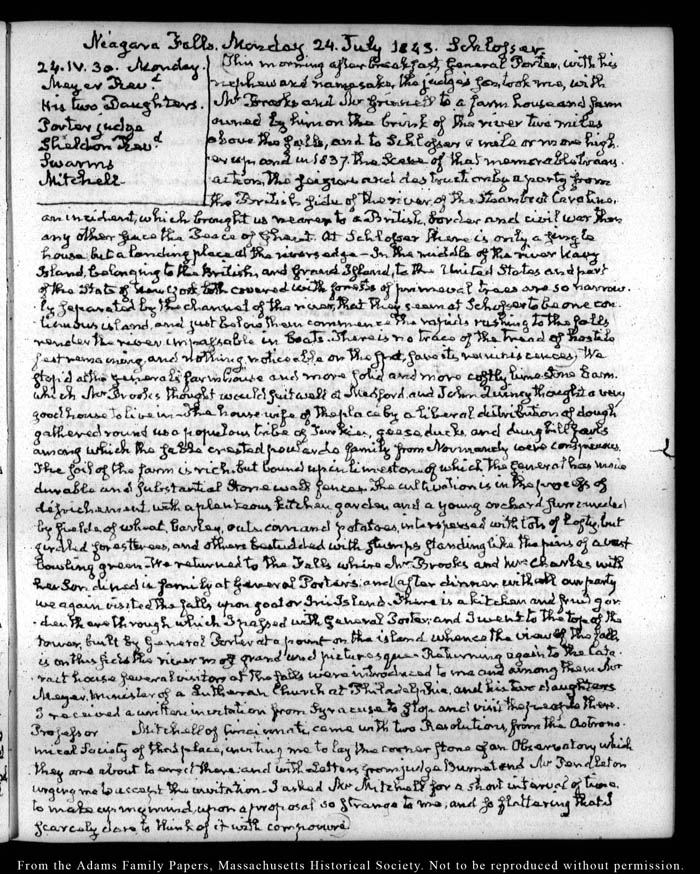 Niagara Falls. Monday 24. July 1843. Schlosser
24. IV. 30. Monday
Meyer Revd
His two Daughters.
Porter judge
Sheldon Revd
Swarms
Mitchell
This morning after breakfast, General Porter, with his
nephew and namesake, the judge's son, took me, with
Mr Brooks and Mr Grinnell to a farm house and farm
owned by him on the brink of the river two miles
above the falls, and to Schlosser a mile or more high-
er up and in 1837. the scene of that memorable trans-
action, the seizure and destruction by a party from
the British side of the river, of the Steamboat Caroline,
an incident, which brought us nearer to a British, border and civil war than
any other since the Peace of Ghent. At Schlosser there is only a single
house, but a landing place at the river's edge – In the middle of the river Navy
Island, belonging to the British, and Grand Island, to the United States and part
of the State of New York both covered with forests of primeval trees are so narrow-
ly separated by the channel of the river, that they seem at Schlosser to be one con-
tinuous island, and just below them commence the rapids rushing to the falls
render the river impassable in boats. There is no trace of the tread of hostile
feet remaining, and nothing noticeable on the spot, save its reminiscences. We
stop'd at the general's farm house and more solid and more costly limestone barn.
which Mr Brooks thought would suit well at Medford, and John Quincy thought a very
good house to live in – The house wife of the place by a liberal distribution of dough
gathered round us a populous tribe of Turkies, geese, ducks, and dunghill fowls
among which the crested family from Normandy were conspicuous.
The soil of the farm is rich, but bound upon limestone of which the General has made
durable and substantial stone wall fences. The cultivation is in the process of
defrichement with a plenteous kitchen garden and a young orchard surrounded
by fields of wheat, barley, oats corn and potatoes, interspersed with lots of lofty, but
girdled forest trees, and others bestudded with stumps standing like the pins of a vast
bowling green. We returned to the Falls where Mr Brooks and Mrs Charles with
her Son dined in family at General Porter's: and after dinner with all our party
we again visited the falls upon goat or Iris Island – There is a kitchen and fruit gar-
den there through which I passed with General Porter, and I went to the top of the
tower, built by General Porter at a point on the island whence the view of the falls
is on this side the river most grand and picturesque – Returning again to the Cata-
ract house several visitors at the falls were introduced to me and among them Mr
Meyer, minister of a Lutheran Church at Philadelphia, and his two daughters
I received a written invitation from Syracuse to stop and visit the people there.
Professor Mitchell of Cincinnati, came with two Resolutions, from the Astrono-
mical Society of that place, inviting me to lay the corner stone of an Observatory which
they are about to erect there: and with Letters from judge Burnet and Mr Pendleton
urging me to accept the invitation – I asked Mr Mitchell for a short interval of time
to make up my mind, upon a proposal so strange to me, and so flattering that I
scarcely dare to think of it with composure
From the Adams Family Papers, Massachusetts Historical Society. Not to be reproduced without permission.